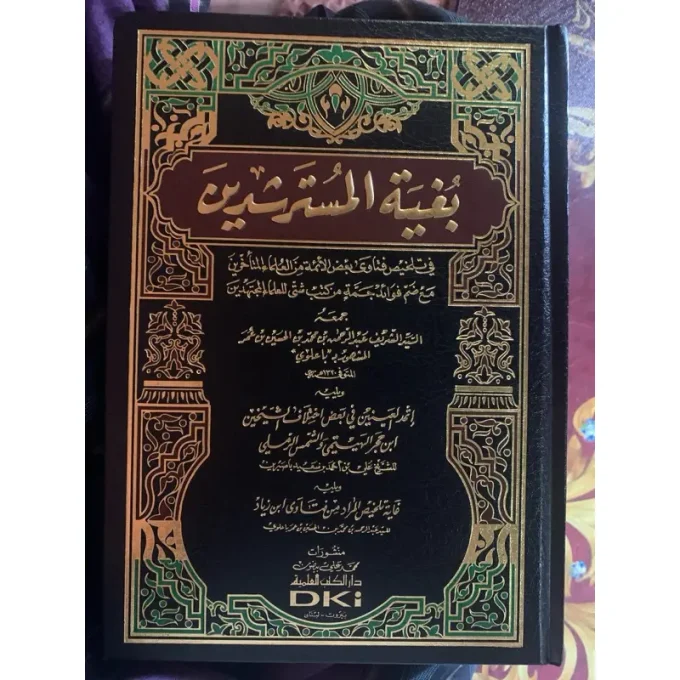 بُغيَة المُسترَشدِين
في تلخيص فتاوى بعض الأئمة من العلماء المتأخرين
مع ضم فوائد جمة من كتب شتى للعلماء المجتهدين
جمعه
السيد الشريف عبد الرحمن بن محمد بن الحسين بن عمر
المشهور بـ "باعلوي"
المتوفى ١٣٢٠هـ
ويليه
إثمد العينين في بعض اختلاف الشيخين
ابن حجر الهيتمي والشمس الرملي
للشيخ علي بن أحمد بن سعيد باصبرين
ويليه
غاية تلخيص المراد من فتاوى ابن زياد
للسيد عبد الرحمن بن محمد بن الحسين بن عمر باعلوي
منشورات
محمد علي بيضون
دار الكتب العلمية
DKi
بيروت - لبنان